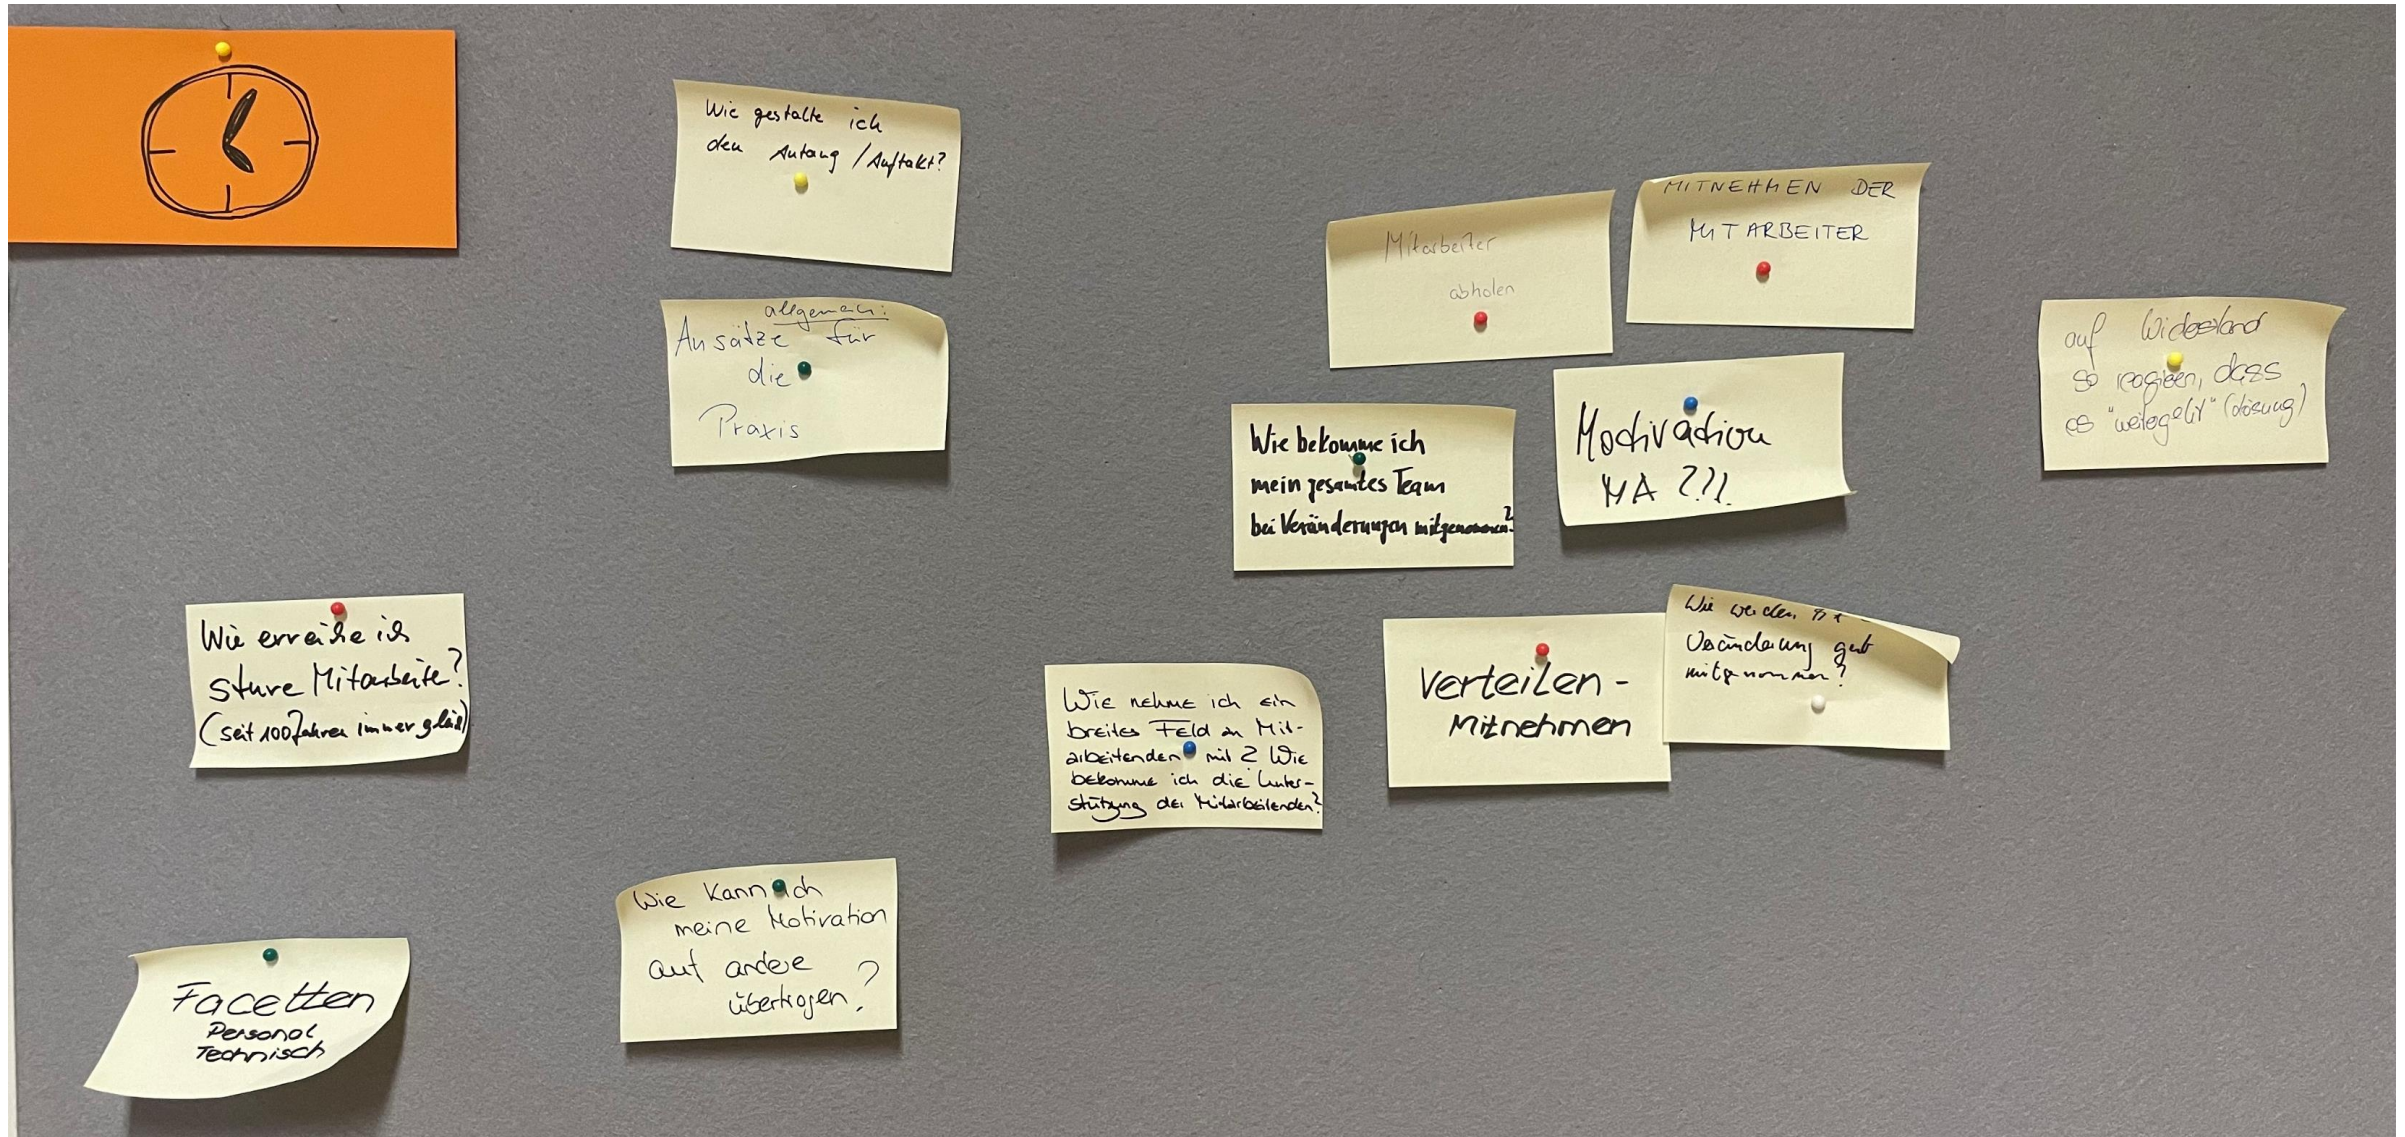 Wie gestalte ich
den Anfang / Auftakt?
allgemein:
Ansätze für
die
Praxis
Mitarbeiter
abholen
MITNEHMEN DER
MITARBEITER
auf Widerstand
so reagieren, dass
es "weitergeht" (Lösung)
Wie bekomme ich
mein gesamtes Team
bei Veränderungen mitgenommen?
Motivation
MA ?!!
Wie erreiche ich
sture Mitarbeiter?
(seit 100 Jahren immer gleich)
Wie nehme ich ein
breites Feld an Mit-
arbeitenden mit? Wie
bekomme ich die Unter-
stützung der Mitarbeitenden?
Verteilen -
Mitnehmen
Wie werden
Veränderung gut
mitgenommen?
Facetten
Personal
Technisch
Wie kann ich
meine Motivation
auf andere
übertragen?